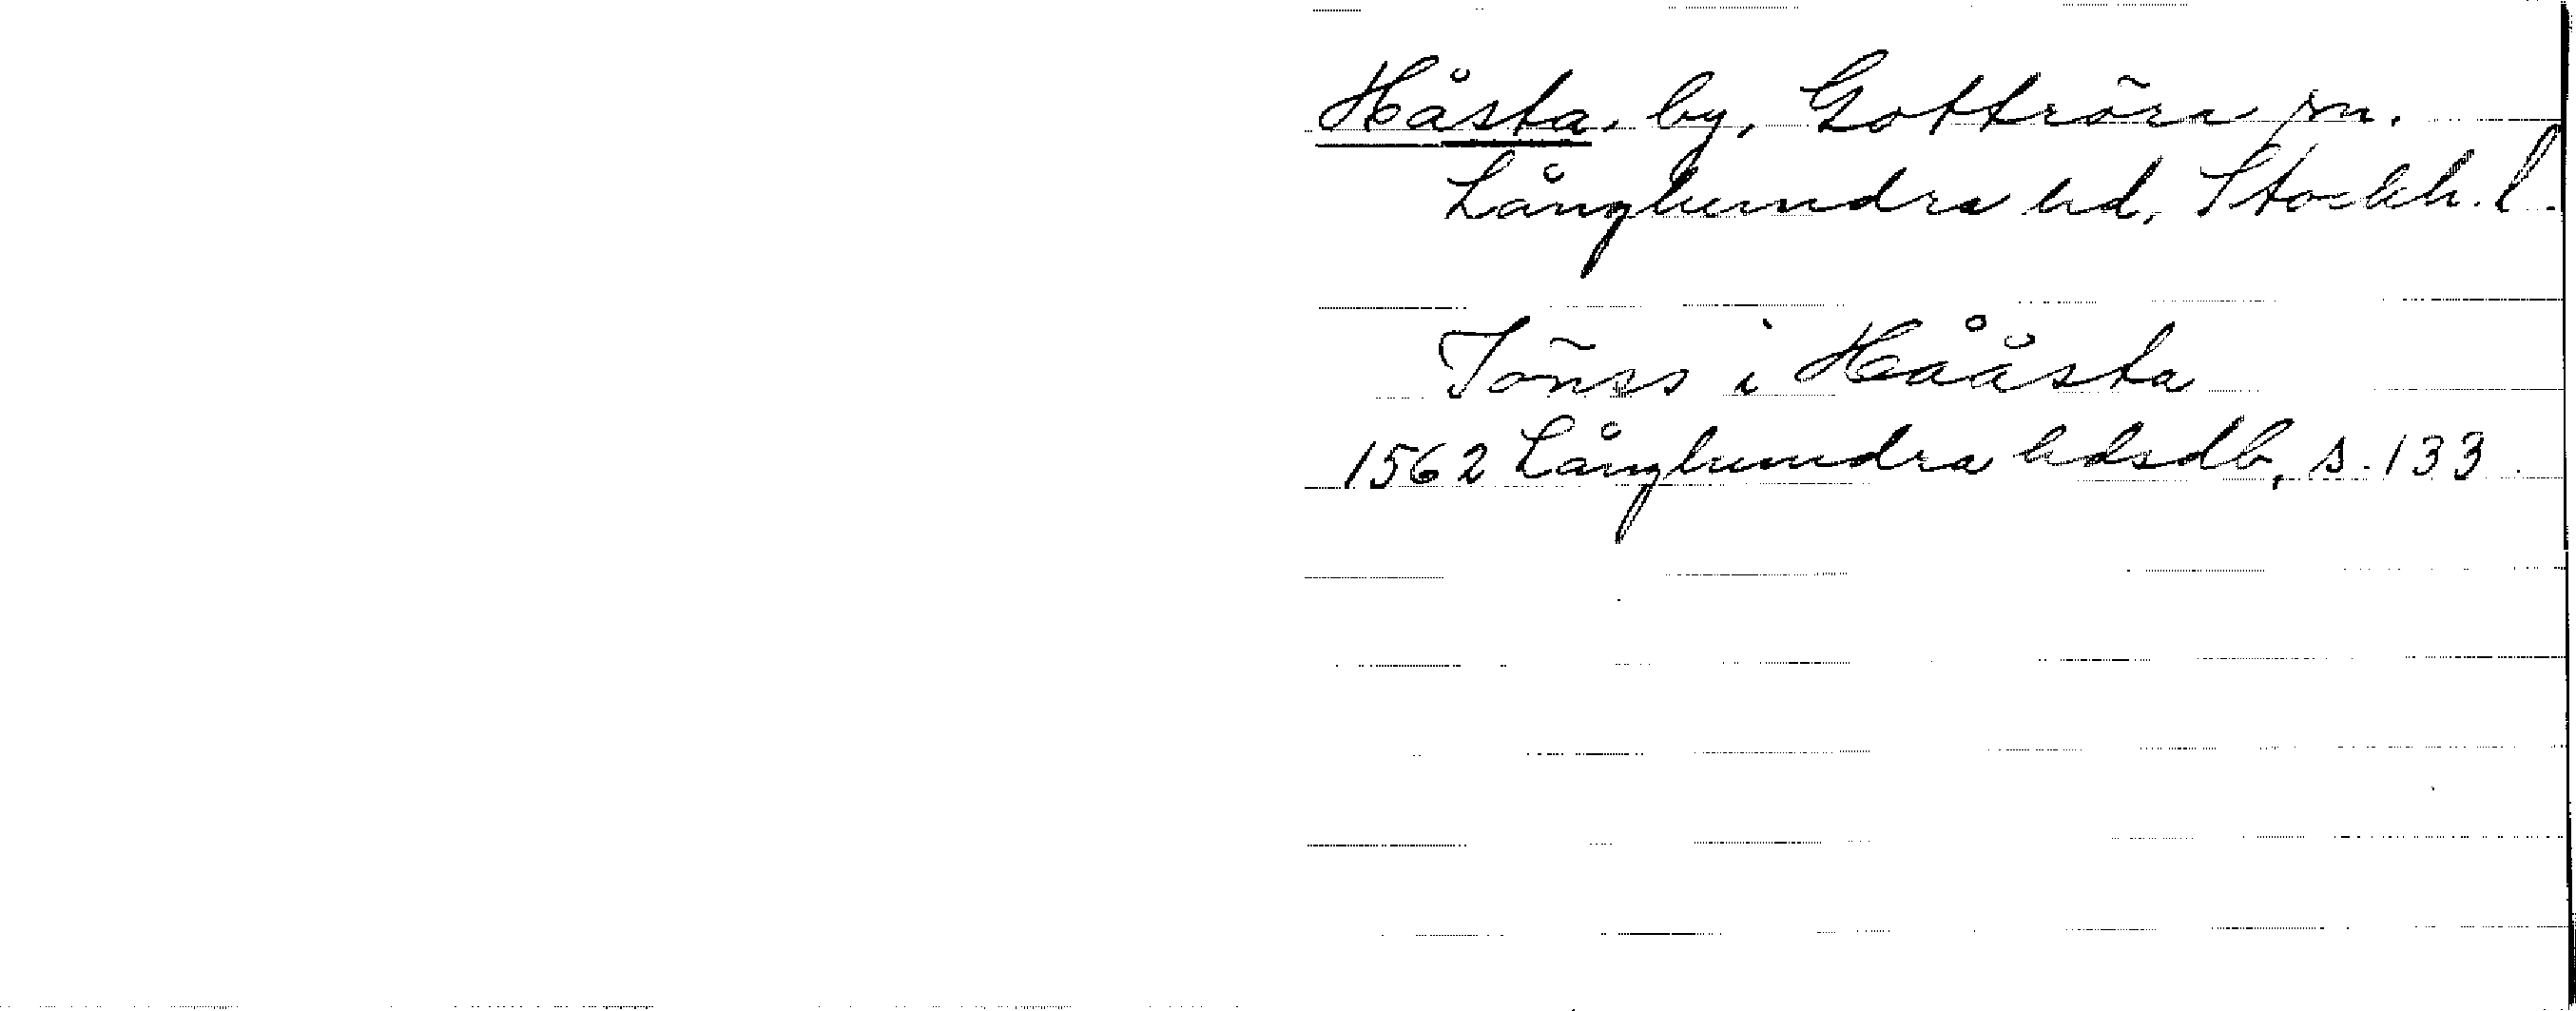 Håsta, by, Gottröra sn.
Långhundra hd, Stockh. l.
Jönss i Hååsta
1562 Långhundra hdsdb, s. 133